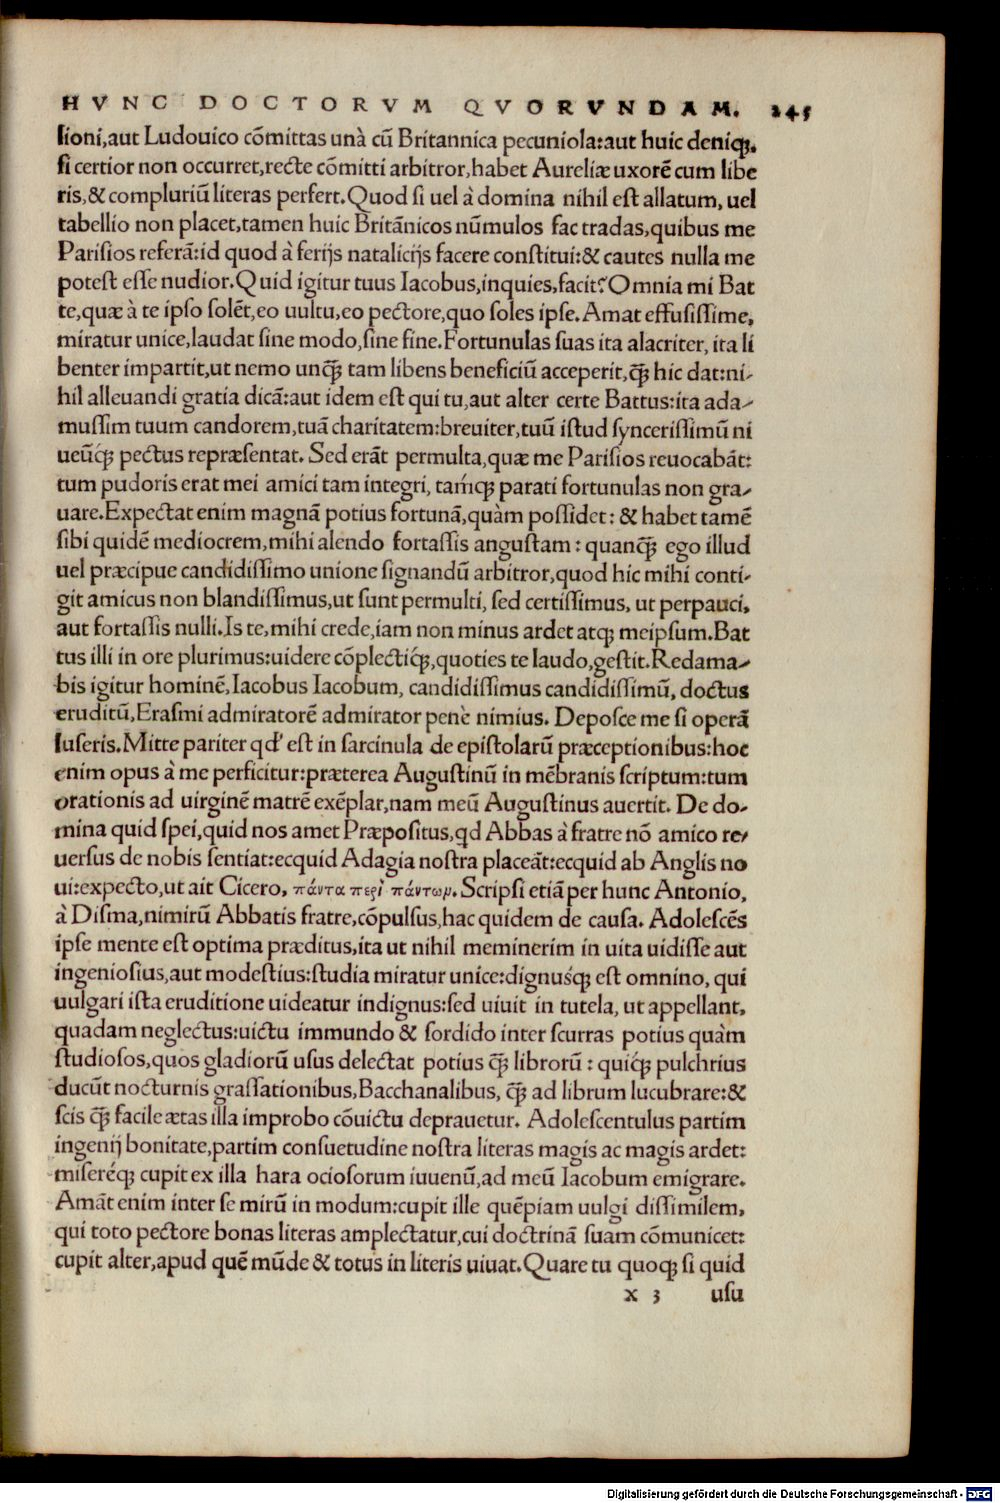 HVNC DOCTORVM QVORVNDAM. 245
sioni,aut Ludouico cõmittas unà cũ Britannica pecuniola:aut huic deniq̃.
si certior non occurret,recte cõmitti arbitror,habet Aureliæ uxorẽ cum libe
ris,& compluriũ literas perfert.Quod si uel à domina nihil est allatum, uel
tabellio non placet,tamen huic Britãnicos nũmulos fac tradas,quibus me
Parisios referã:id quod à ferijs natalicijs facere constitui:& cautes nulla me
potest esse nudior.Quid igitur tuus Iacobus,inquies,facit?Omnia mi Bat
te,quæ à te ipso solẽt,eo uultu,eo pectore,quo soles ipse.Amat effusissime,
miratur unice,laudat sine modo,sine fine.Fortunulas suas ita alacriter, ita li
benter impartit,ut nemo unq̃ tam libens beneficiũ acceperit,q̃ hic dat:ni-
hil alleuandi gratia dicã:aut idem est qui tu,aut alter certe Battus:ita ada-
mussim tuum candorem,tuã charitatem:breuiter,tuũ istud syncerissimũ ni
ueũq́ꝫ pectus repræsentat. Sed erãt permulta,quæ me Parisios reuocabãt:
tum pudoris erat mei amici tam integri, tamq́ꝫ parati fortunulas non gra-
uare.Expectat enim magnã potius fortunã,quàm possidet: & habet tamẽ
sibi quidẽ mediocrem,mihi alendo fortassis angustam: quanq̃ ego illud
uel præcipue candidissimo unione signandũ arbitror,quod hic mihi conti-
git amicus non blandissimus,ut sunt permulti, sed certissimus, ut perpauci,
aut fortassis nulli.Is te,mihi crede,iam non minus ardet atqꝫ meipsum.Bat
tus illi in ore plurimus:uidere cõplectiq́ꝫ,quoties te laudo,gestit.Redama-
bis igitur hominẽ,Iacobus Iacobum, candidissimus candidissimũ, doctus
eruditũ,Erasmi admiratorẽ admirator penè nimius. Deposce me si operã
luseris.Mitte pariter qd' est in sarcinula de epistolarũ præceptionibus:hoc
enim opus à me perficitur:præterea Augustinũ in mẽbranis scriptum:tum
orationis ad uirginẽ matrẽ exẽplar,nam meũ Augustinus auertit. De do-
mina quid spei,quid nos amet Præpositus,qd Abbas à fratre nõ amico re-
uersus de nobis sentiat:ecquid Adagia nostra placeãt:ecquid ab Anglis no
ui:expecto,ut ait Cicero, πάντα περὶ πάντων.Scripsi etiã per hunc Antonio,
à Disma,nimirũ Abbatis fratre,cõpulsus,hac quidem de causa. Adolescẽs
ipse mente est optima præditus,ita ut nihil meminerim in uita uidisse aut
ingeniosius,aut modestius:studia miratur unice:dignusq́ꝫ est omnino, qui
uulgari ista eruditione uideatur indignus:sed uiuit in tutela, ut appellant,
quadam neglectus:uictu immundo & sordido inter scurras potius quàm
studiosos,quos gladiorũ usus delectat potius q̃ librorũ: quiq́ꝫ pulchrius
ducũt nocturnis grassationibus,Bacchanalibus, q̃ ad librum lucubrare:&
scis q̃ facile ætas illa improbo cõuictu deprauetur. Adolescentulus partim
ingenij bonitate,partim consuetudine nostra literas magis ac magis ardet:
miseréqꝫ cupit ex illa hara ociosorum iuuenũ,ad meũ Iacobum emigrare.
Amãt enim inter se mirũ in modum:cupit ille quẽpiam uulgi dissimilem,
qui toto pectore bonas literas amplectatur,cui doctrinã suam cõmunicet:
cupit alter,apud quẽ mũde & totus in literis uiuat.Quare tu quoqꝫ si quid
x 3 usu
Digitalisierung gefördert durch die Deutsche Forschungsgemeinschaft - DFG